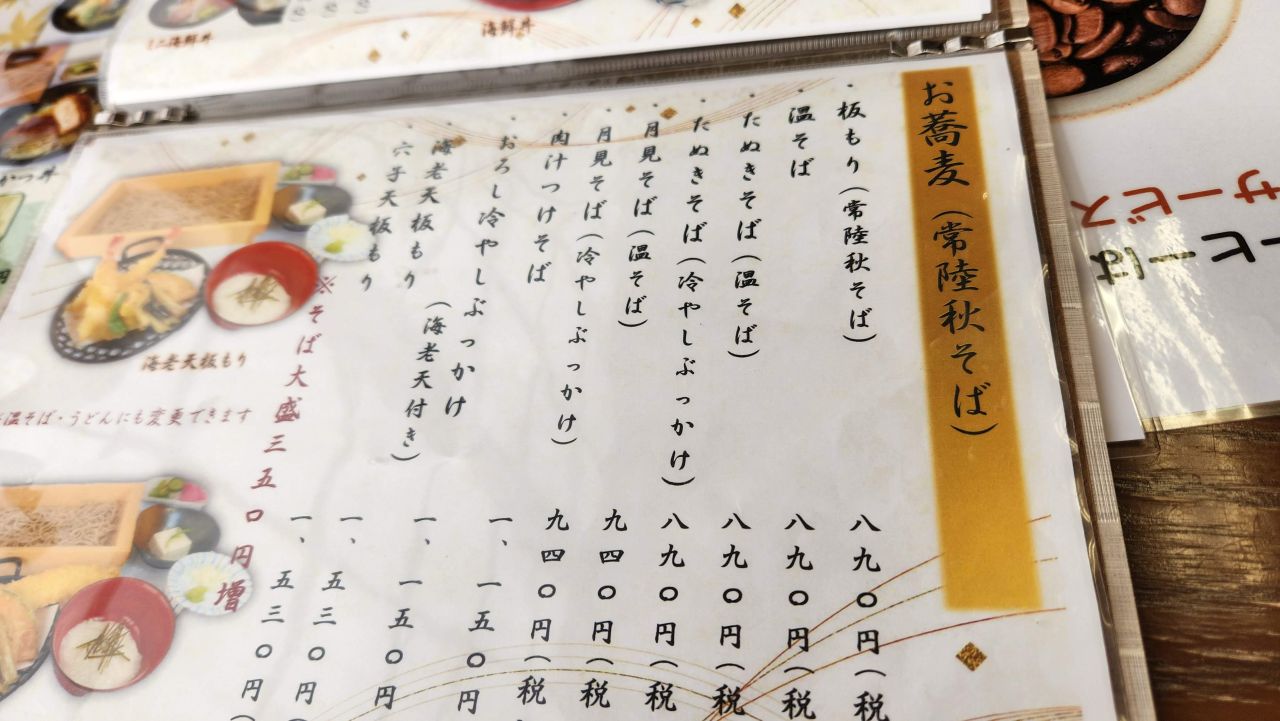 お蕎麦(常陸秋そば)
・板もり(常陸秋そば) 八九〇円(税
・温そば 八九〇円(税
・たぬきそば(温そば) 八九〇円(税
・たぬきそば(冷やしぶっかけ) 八九〇円(税
・月見そば(温そば) 九四〇円(税
・月見そば(冷やしぶっかけ) 九四〇円(税
・肉汁つけそば 一、一五〇円
・おろし冷やしぶっかけ 一、一五〇円
(海老天付き)
・海老天板もり 一、五三〇円
・六子天板もり 一、五三〇円(
※そば大盛三五〇円増
海老天板もり
温そば・うどんにも変更できます
ミニ海鮮丼
海鮮丼
かつ丼
ーヒーは
サービス